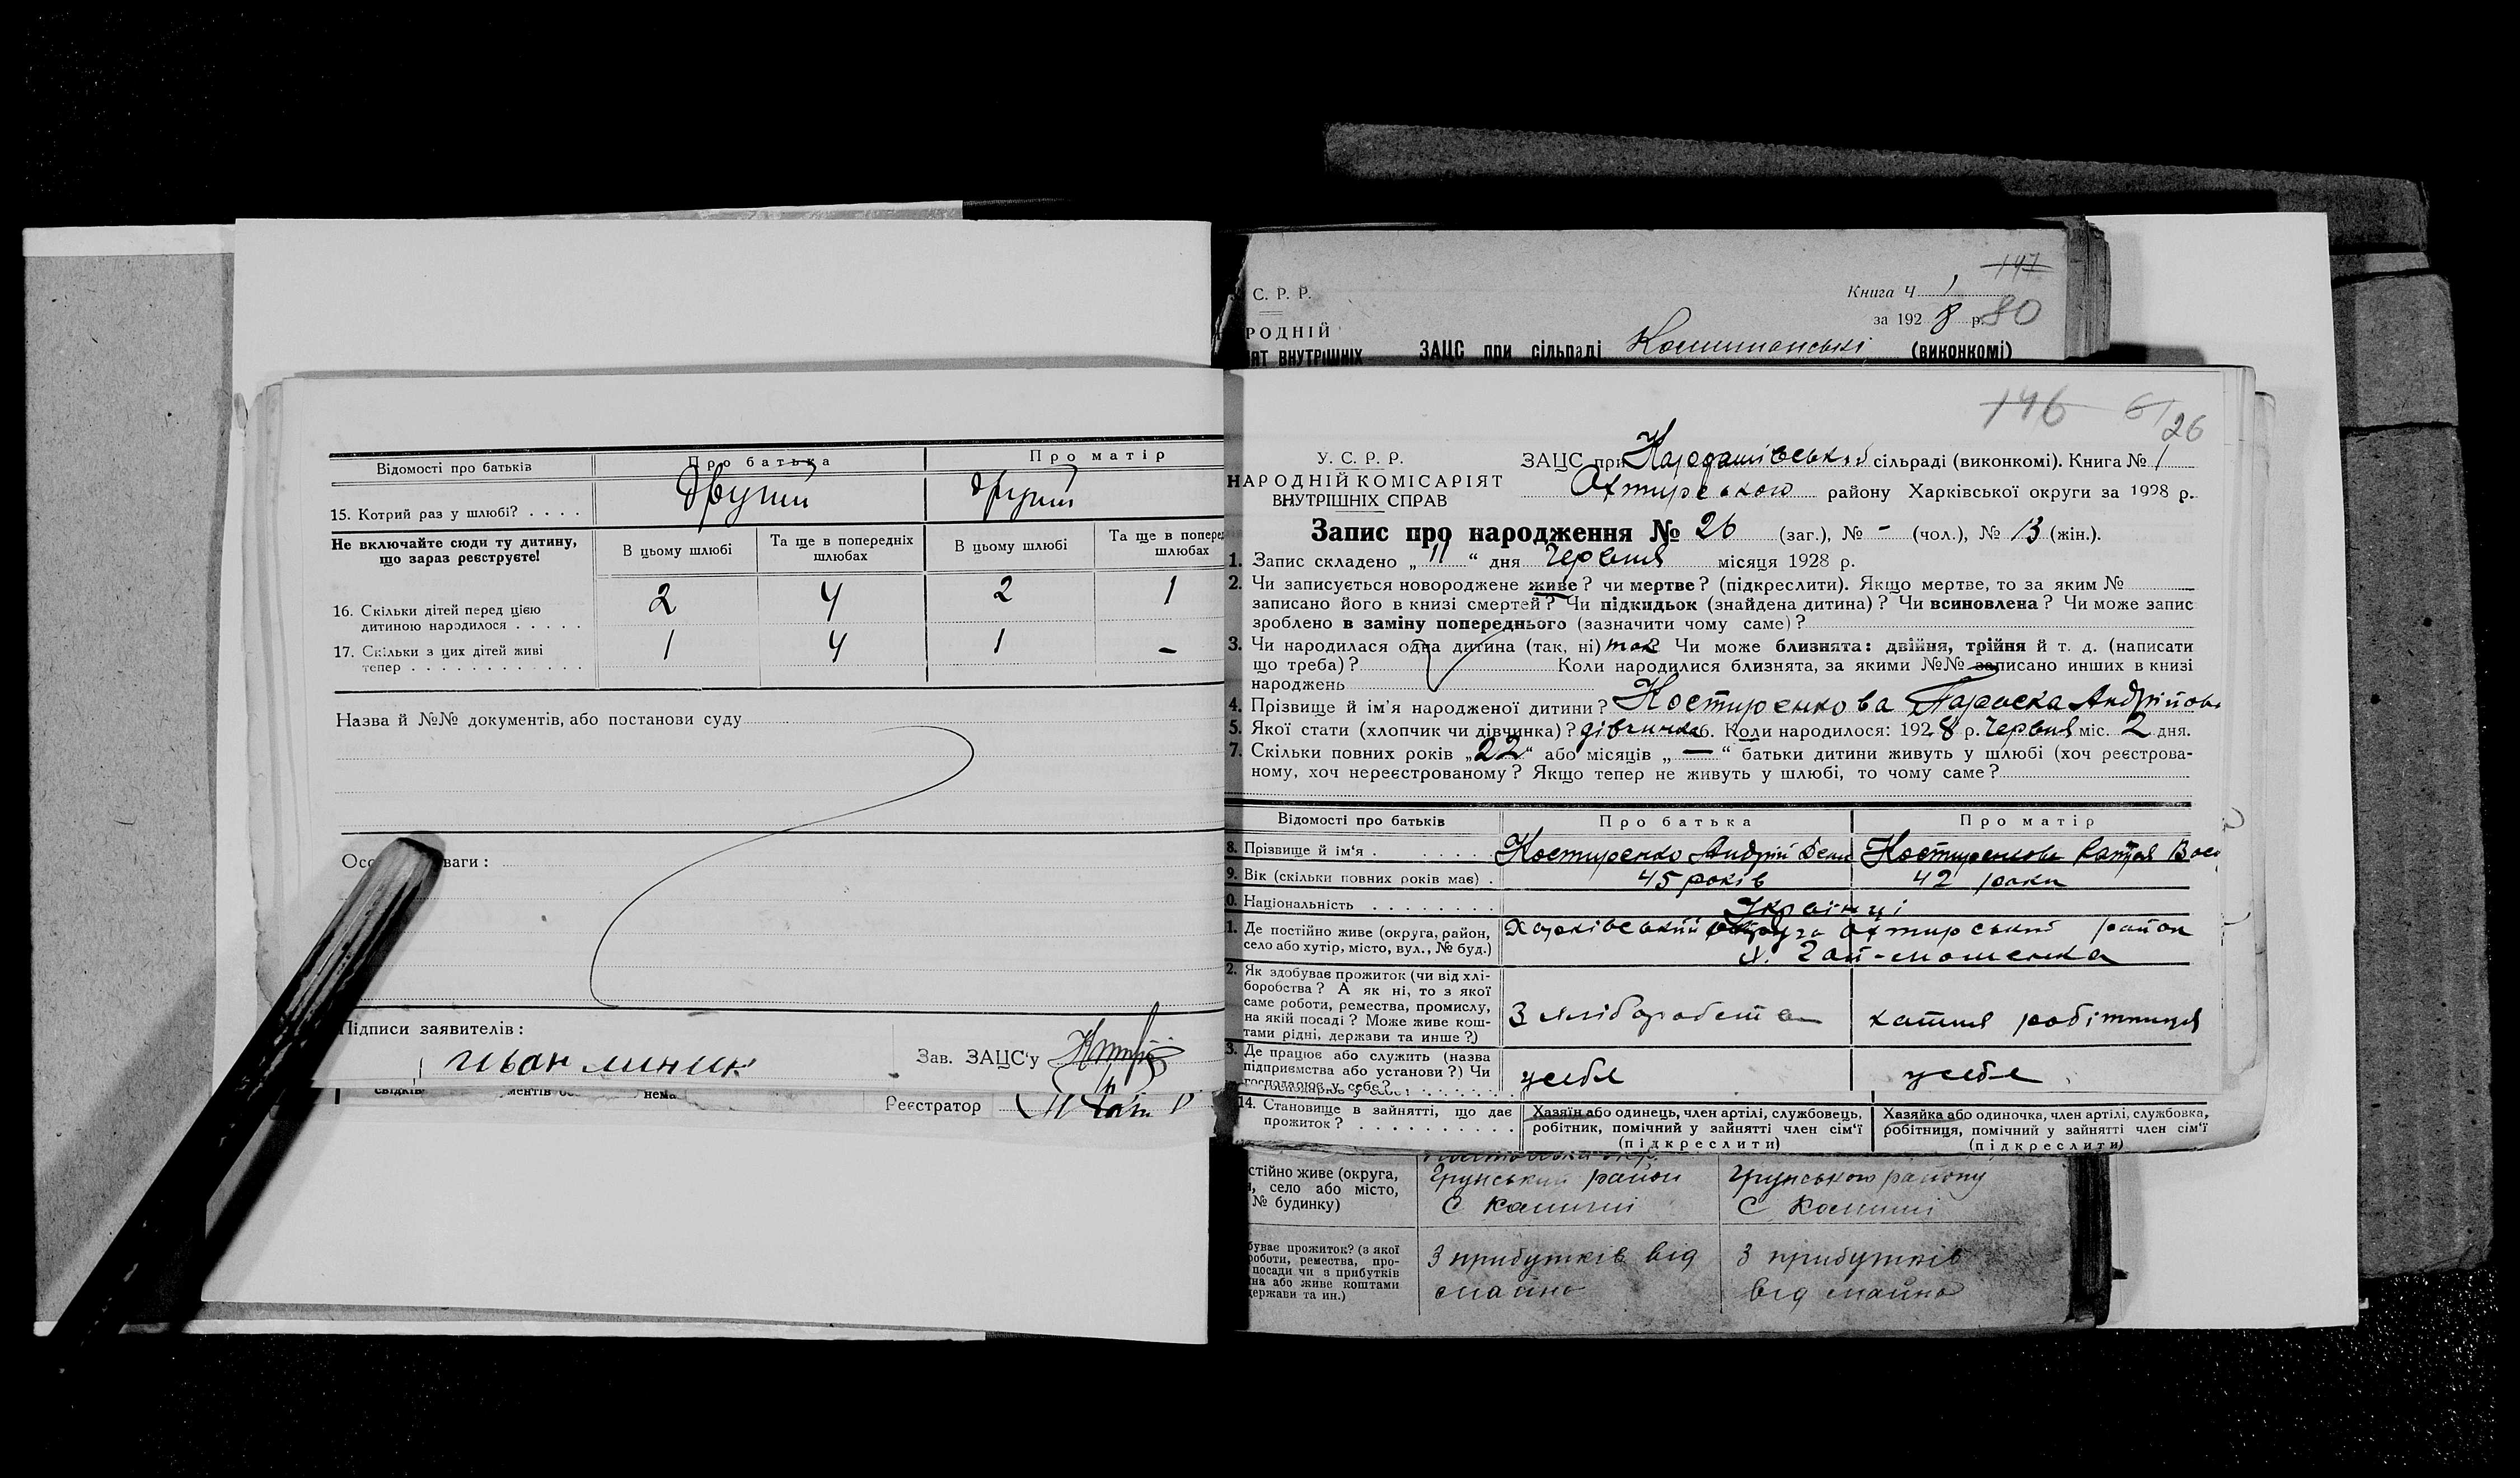 Відомості про батьків
Про батька
Про матір
15. Котрий раз у шлюбі? . . . .
Другий
другий
Не включайте сюди ту дитину,
що зараз реєструєте!
В цьому шлюбі
Та ще в попередніх
шлюбах
В цьому шлюбі
Та ще в попере
шлюбах
16. Скільки дітей перед цією
дитиною народилося . . . . .
2
4
2
1
17. Скільки з цих дітей живі
тепер . . . . . . . . . . . .
1
4
1
-
Назва й №№ документів, або постанови суду
Осо
ваги :
Підписи заявителів :
Зав. ЗАЦС'у
свідків
ментів
нема
Реєстратор
147
С. Р. Р.
Книга Ч 1
за 1928 р. 80
РОДНІЙ
ІЯТ ВНУТРІШНІХ
ЗАЦС при сільраді (виконкомі)
146 6/26
У. С. Р. Р.
НАРОДНІЙ КОМІСАРІЯТ
ВНУТРІШНІХ СПРАВ
ЗАЦС при сільраді (виконкомі). Книга № 1
Охтирського району Харківської округи за 1928 р.
Запис про народження № 26 (заг.), № - (чол.), № 13 (жін.).
1. Запис складено „ 11 “ дня Червня місяця 1928 р.
2. Чи записується новороджене живе? чи мертве? (підкреслити). Якщо мертве, то за яким №
записано його в книзі смертей? Чи підкидьок (знайдена дитина)? Чи всиновлена? Чи може запис
зроблено в заміну попереднього (зазначити чому саме)?
3. Чи народилася одна дитина (так, ні) так? Чи може близнята: двійня, трійня й т. д. (написати
що треба)? Коли народилися близнята, за якими №№ записано инших в книзі
народжень
4. Прізвище й ім'я народженої дитини? Костиренкова Параска Андрійов
5. Якої стати (хлопчик чи дівчинка)? дівчинка 6. Коли народилося: 1928 р. Червня міс. 2 дня.
7. Скільки повних років „22“ або місяців „—“ батьки дитини живуть у шлюбі (хоч реєстрова-
ному, хоч нереєстрованому? Якщо тепер не живуть у шлюбі, то чому саме?
Відомості про батьків
Про батька
Про матір
8. Прізвище й ім'я .
Костиренко Андрій
Костиренкова Катря
9. Вік (скільки повних років має) .
45 років
42 роки
0. Національність . . . . . . . .
Українці
1. Де постійно живе (округа, район,
село або хутір, місто, вул., № буд.)
Харківський округа Охтирський район
х. Гай-мошенка
2. Як здобуває прожиток (чи від хлі-
боробства? А як ні, то з якої
саме роботи, ремества, промислу,
на якій посаді? Може живе кош-
тами рідні, держави та инше?)
З хліборобства
хатня робітниця
3. Де працює або служить (назва
підприємства або установи?) Чи
господарює у себе?
усебе
усебе
14. Становище в зайнятті, що дає
прожиток? . . . . . . . . . .
Хазяїн або одинець, член артілі, службовець,
робітник, помічний у зайнятті член сім'ї
(підкреслити)
Хазяйка або одиночка, член артілі, службовка,
робітниця, помічний у зайнятті член сім'ї
(підкреслити)
стійно живе (округа,
н, село або місто,
№ будинку)
Грунський район
Грунського району
буває прожиток? (з якої
роботи, ремества, про-
посади чи з прибутків
на або живе коштами
держави та ин.)
З прибутків від
майна
З прибутків
від майна